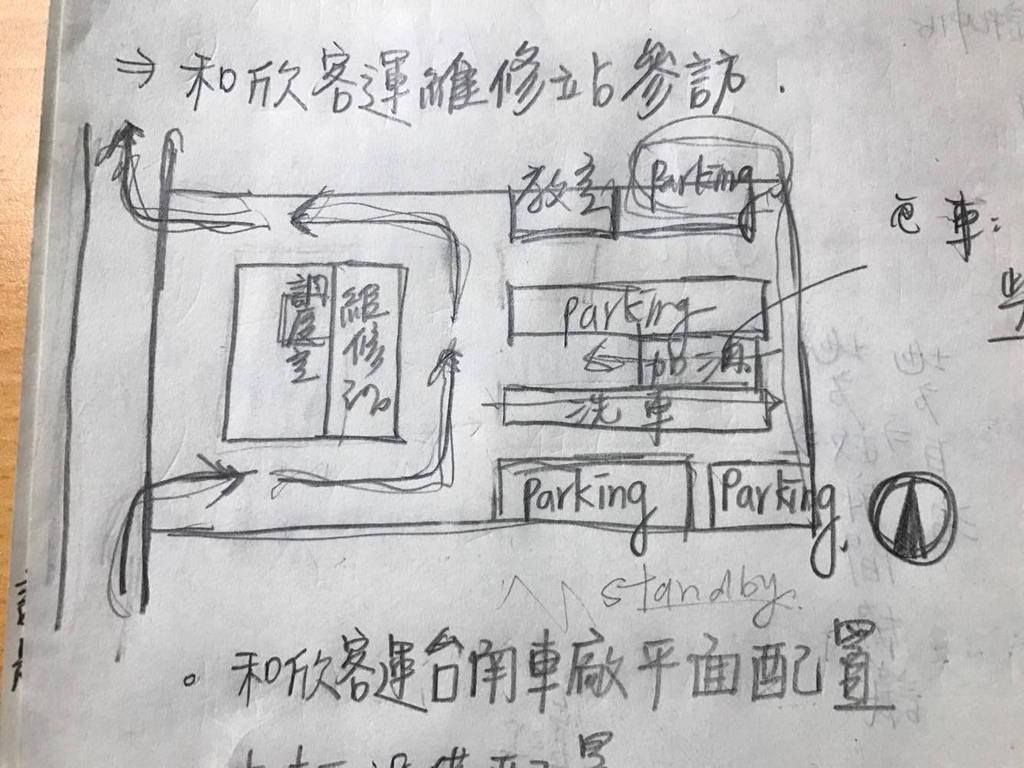 ⇒ 和欣客運維修站參訪.
教室
Parking
包車:
調度室
維修
Parking
加油
洗車
Parking
Parking
standby.
。和欣客運台南車廠平面配置